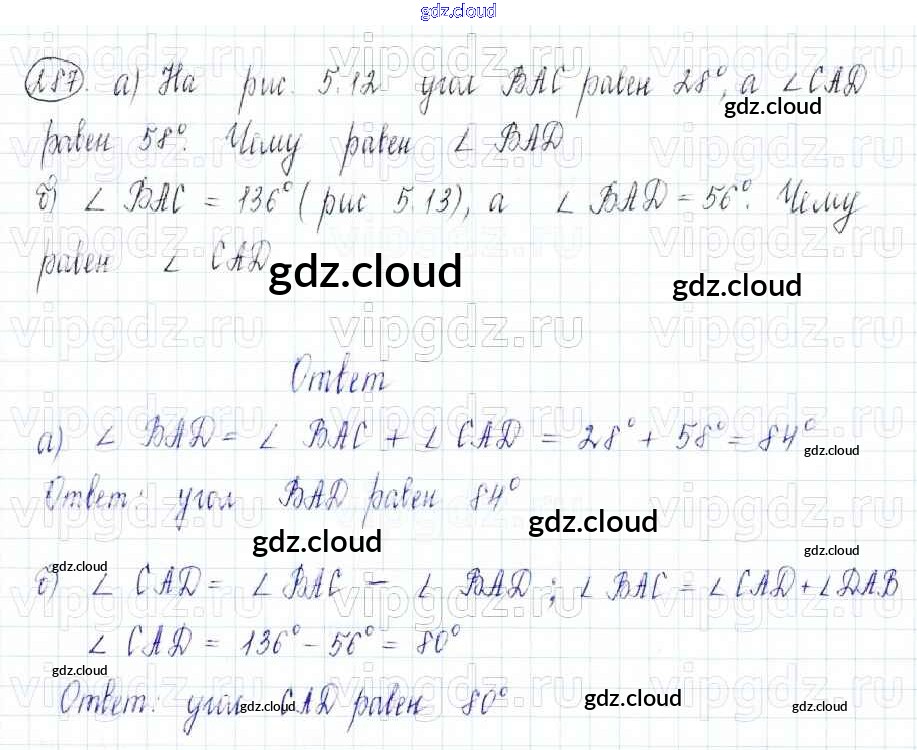 gdz.cloud
187. а) На рис. 5.12 угол BAC равен 28°, а ∠CAD
gdz.cloud
равен 58°. Чему равен ∠ BAD
б) ∠ BAC = 136° ( рис 5.13), а ∠ BAD = 56°. Чему
равен ∠ CAD
gdz.cloud
gdz.cloud
vipgdz.ru vipgdz.ru vipgdz.ru
Ответ
а) ∠ BAD = ∠ BAC + ∠ CAD = 28° + 58° = 84°
gdz.cloud
Ответ: угол BAD равен 84°
gdz.cloud
gdz.cloud
gdz.cloud
gdz.cloud
б) ∠ CAD = ∠ BAC − ∠ BAD ; ∠ BAC = ∠ CAD + ∠ DAB
∠ CAD = 136° − 56° = 80°
gdz.cloud
Ответ: угол CAD равен 80°
gdz.cloud gdz.cloud gdz.cloud